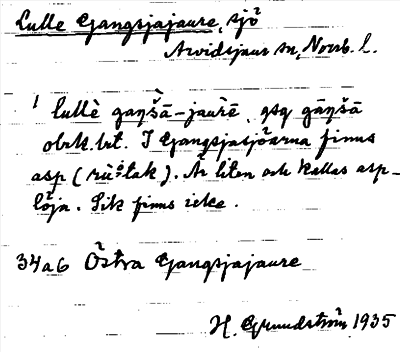 Lulle Gangsjajaure, sjö
Arvidsjaur sn, Norrb. l.
1 lullè gaŋšā-jaurē, gsg gāŋšā
obrk. brt. I Gangsjasjöarna finns
asp (rūstak). Är liten och kallas asp-
löja. Sik finns icke.
34a6 Östra Gangsjajaure
H. Grundström 1935